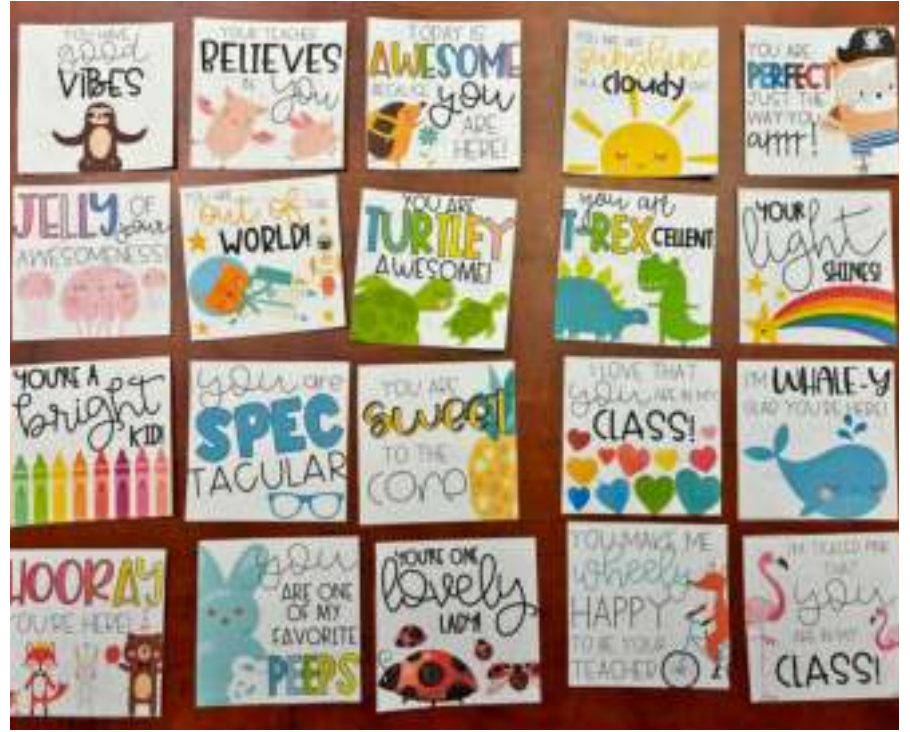 YOU HAVE
good
VIBES
YOUR TEACHER
BELIEVES
IN
you
TODAY IS
AWESOME
BECAUSE
you
ARE
HERE!
YOU ARE
sunshine
cloudy
YOU ARE
PERFECT
JUST THE
WAY YOU
arrrr!
JELLY OF
your
AWESOMENESS!
YOU ARE
out of
WORLD!
YOU ARE
TURTLEY
AWESOME!
you are
T-REX CELLENT
YOUR
light
SHINES!
YOU'RE A
bright
KID!
you are
SPEC
TACULAR
YOU ARE
sweet
TO THE
core
I LOVE THAT
you ARE IN MY
CLASS!
I'M WHALE-Y
GLAD YOU'RE HERE!
HOORAY
YOU'RE HERE!
you
ARE ONE
OF MY
FAVORITE
PEEPS
YOU'RE ONE
lovely
LADY!
YOU MAKE ME
wheely
HAPPY
TO BE YOUR
TEACHER
I'M TICKLED PINK
THAT
you
ARE IN MY
CLASS!